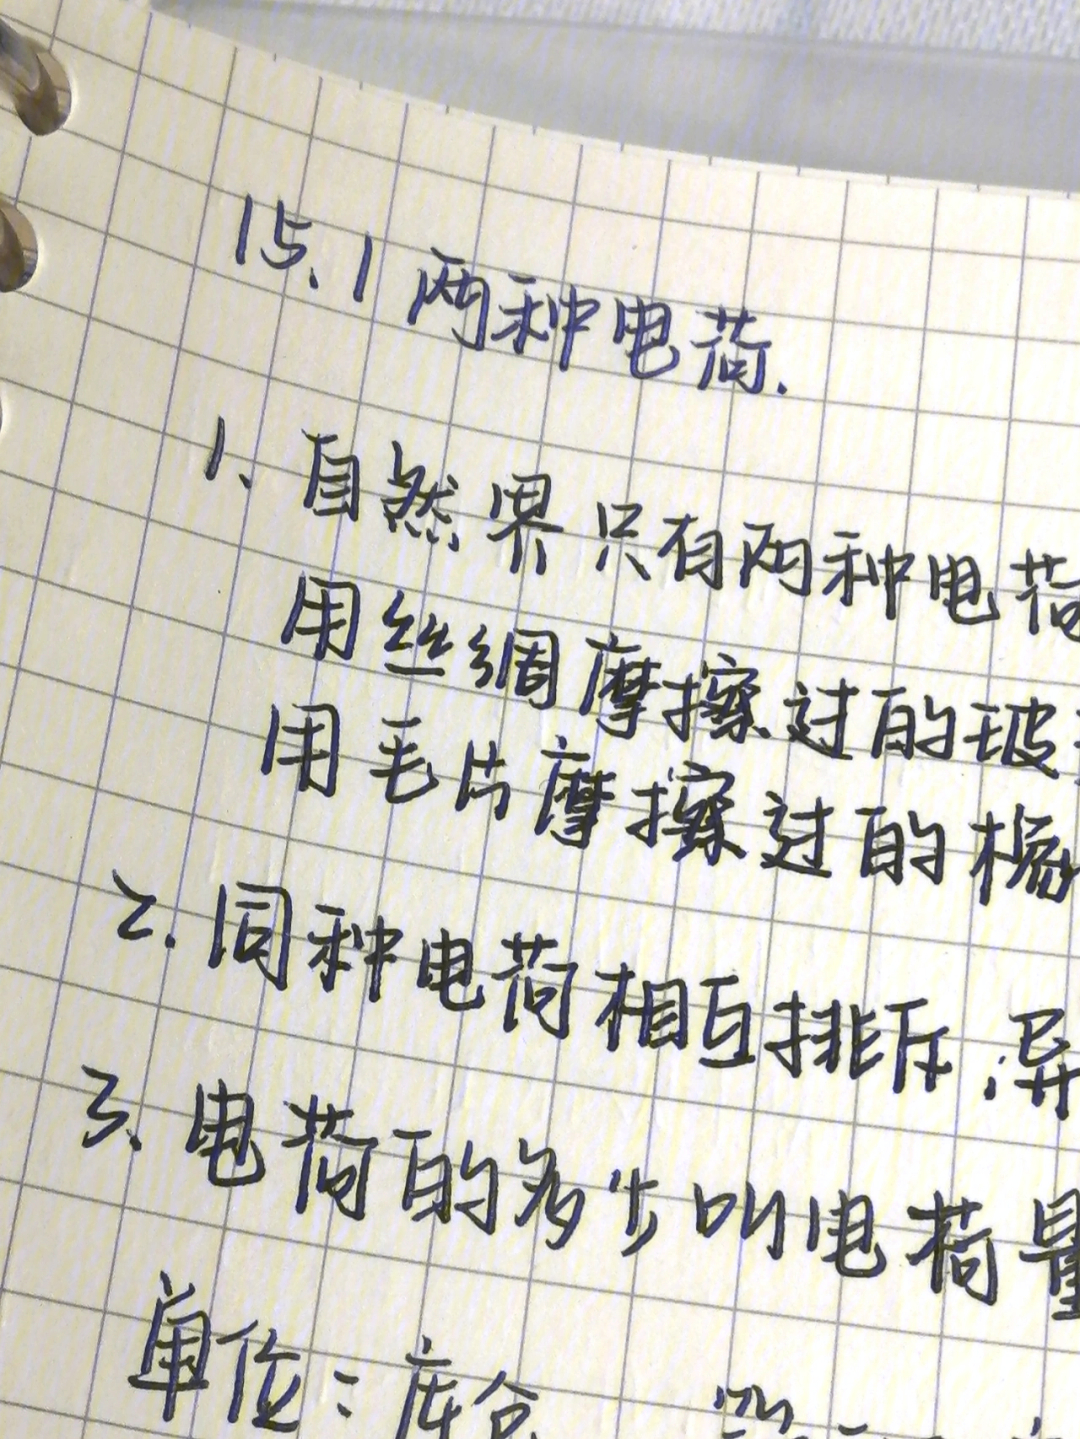 15.1 两种电荷.
1、自然界只有两种电荷
用丝绸摩擦过的玻
用毛片摩擦过的橡
2.同种电荷相互排斥,异
3、电荷的多少叫电荷量
单位:库仑